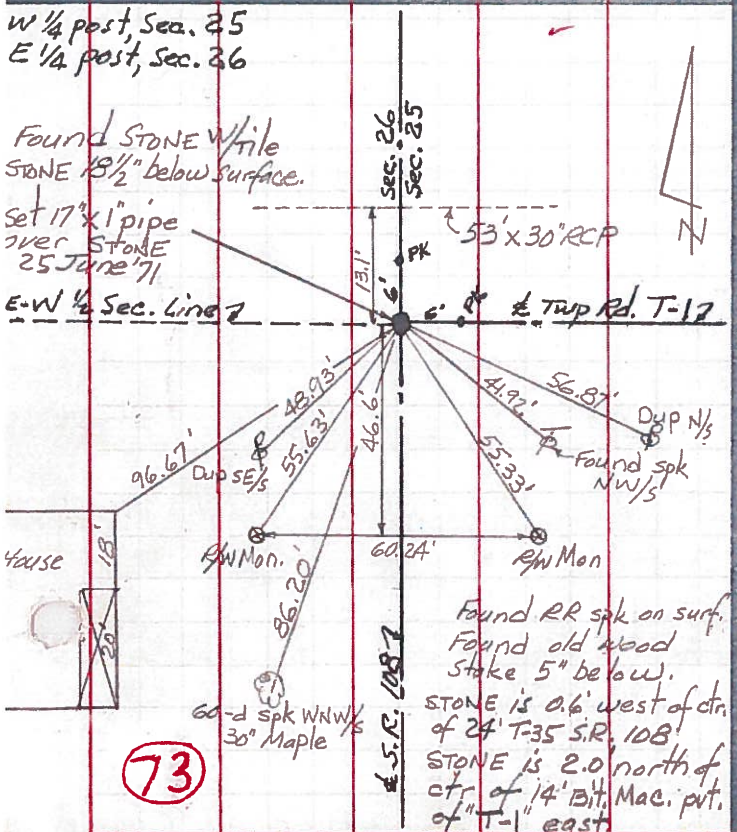 W 1/4 post, Sec. 25
E 1/4 post, Sec. 26
Found STONE W/tile
STONE 18 1/2" below surface.
Set 17" x 1" pipe
over STONE
25 June '71
E-W 1/2 Sec. Line
Sec. 26
Sec. 25
53' x 30" RCP
13.1'
PK
6'
6'
PK
℄ Twp Rd. T-1
N
48.93'
96.67'
Dup SE/s
55.63'
46.6'
41.92'
56.87'
Dup N/s
Found spk
NW/s
55.33'
R/W Mon.
60.24'
R/W Mon
House
18'
20'
86.20'
60-d spk WNW/s
30" Maple
℄ S.R. 108
Found RR spk on surf.
Found old wood
Stake 5" below.
STONE is 0.6' west of ctr.
of 24' T-35 S.R. 108
STONE is 2.0' north of
ctr of 14' Bit. Mac. pvt.
of "T-1" east
73